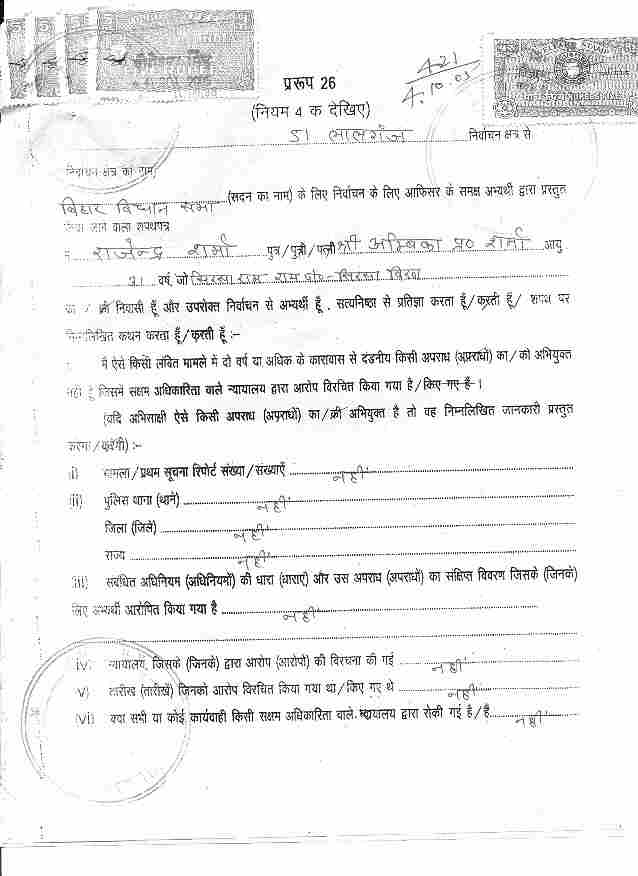 421
4.10.05
प्ररूप 26
(नियम 4 क देखिए)
51 लालगंज निर्वाचन क्षेत्र से
निर्वाचन क्षेत्र का नाम
(सदन का नाम) के लिए निर्वाचन के लिए आफिसर के समक्ष अभ्यर्थी द्वारा प्रस्तुत
बिहार विधान सभा
किया जाने वाला शपथपत्र
मैं राजेन्द्र शर्मा पुत्र/पुत्री/पत्नी श्री अम्बिका प्र० शर्मा आयु
वर्ष, जो
का / की निवासी हूँ और उपरोक्त निर्वाचन से अभ्यर्थी हूँ, सत्यनिष्ठा से प्रतिज्ञा करता हूँ/करती हूँ/ शपथ पर
निम्नलिखित कथन करता हूँ/करती हूँ :-
मैं ऐसे किसी लंबित मामले में दो वर्ष या अधिक के कारावास से दंडनीय किसी अपराध (अपराधों) का/की अभियुक्त
नहीं हूँ जिसमें सक्षम अधिकारिता वाले न्यायालय द्वारा आरोप विरचित किया गया है/किए गए हैं।
(यदि अभिसाक्षी ऐसे किसी अपराध (अपराधों) का/की अभियुक्त है तो वह निम्नलिखित जानकारी प्रस्तुत
करेगा/करेगी) :-
i) मामला/प्रथम सूचना रिपोर्ट संख्या/संख्याएँ नहीं
(ii) पुलिस थाना (थाने) नहीं
जिला (जिले) नहीं
राज्य नहीं
iii) संबंधित अधिनियम (अधिनियमों) की धारा (धाराएं) और उस अपराध (अपराधों) का संक्षिप्त विवरण जिसके (जिनके)
लिए अभ्यर्थी आरोपित किया गया है नहीं
iv) न्यायालय, जिसके (जिनके) द्वारा आरोप (आरोपों) की विरचना की गई नहीं
v) तारीख (तारीखें) जिनको आरोप विरचित किया गया था/किए गए थे नहीं
(vi) क्या सभी या कोई कार्यवाही किसी सक्षम अधिकारिता वाले न्यायालय द्वारा रोकी गई है/हैं नहीं